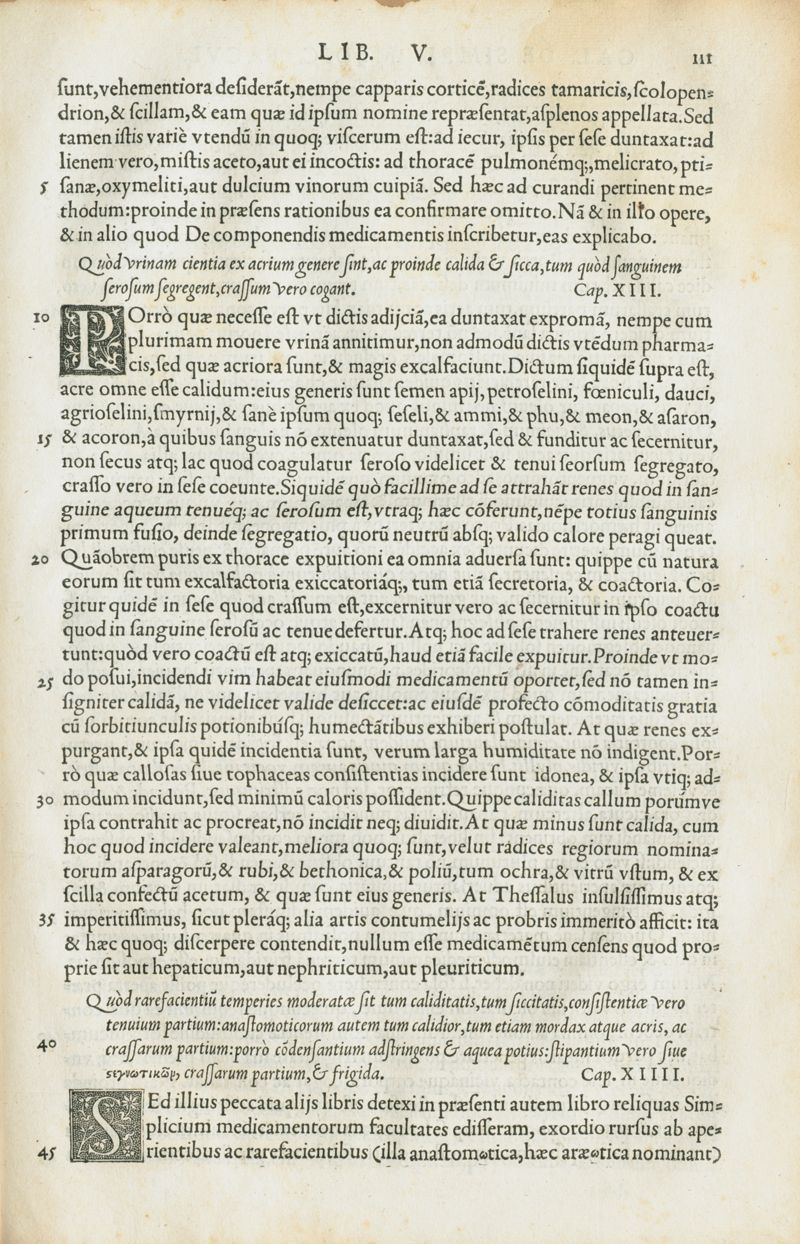 LIB. V. 111
ſunt,vehementiora deſiderāt,nempe capparis corticē,radices tamaricis,ſcolopen⸗
drion,& ſcillam,& eam quæ id ipſum nomine repræſentat,aſplenos appellata.Sed
tamen iſtis variè vtendū in quoq; viſcerum eſt:ad iecur, ipſis per ſeſe duntaxat:ad
lienem vero,miſtis aceto,aut ei incoctis: ad thoracē pulmonémq;,melicrato,pti⸗
5 ſanæ,oxymeliti,aut dulcium vinorum cuipiā. Sed hæc ad curandi pertinent me⸗
thodum:proinde in præſens rationibus ea confirmare omitto.Nā & in illo opere,
& in alio quod De componendis medicamentis inſcribetur,eas explicabo.
Quòd vrinam cientia ex acrium genere ſint,ac proinde calida & ſicca,tum quòd ſanguinem
ſeroſum ſegregent,craſſum vero cogant. Cap. XIII.
10 POrrò quæ neceſſe eſt vt dictis adijciā,ea duntaxat expromā, nempe cum
plurimam mouere vrinā annitimur,non admodū dictis vtédum pharma⸗
cis,ſed quæ acriora ſunt,& magis excalfaciunt.Dictum ſiquidē ſupra eſt,
acre omne eſſe calidum:eius generis ſunt ſemen apij, petroſelini, fœniculi, dauci,
agrioſelini,ſmyrnij,& ſanè ipſum quoq; ſeſeli,& ammi,& phu,& meon,& aſaron,
15 & acoron,à quibus ſanguis nō extenuatur duntaxat,ſed & funditur ac ſecernitur,
non ſecus atq; lac quod coagulatur ſeroſo videlicet & tenui ſeorſum ſegregato,
craſſo vero in ſeſe coeunte.Siquidē quò facillime ad ſe attrahāt renes quod in ſan⸗
guine aqueum tenuéq; ac ſeroſum eſt,vtraq; hæc cōferunt,nēpe totius ſanguinis
primum fuſio, deinde ſegregatio, quorū neutrū abſq; valido calore peragi queat.
20 Quāobrem puris ex thorace expuitioni ea omnia aduerſa ſunt: quippe cū natura
eorum ſit tum excalfactoria exiccatoriáq;, tum etiā ſecretoria, & coactoria. Co⸗
gitur quidē in ſeſe quod craſſum eſt,excernitur vero ac ſecernitur in ipſo coactu
quod in ſanguine ſeroſū ac tenue defertur.Atq; hoc ad ſeſe trahere renes anteuer⸗
tunt:quòd vero coactū eſt atq; exiccatū,haud etiā facile expuitur.Proinde vt mo⸗
25 do poſui,incidendi vim habeat eiuſmodi medicamentū oportet,ſed nō tamen in⸗
ſigniter calidā, ne videlicet valide deſiccet:ac eiuſdē profecto cōmoditatis gratia
cū ſorbitiunculis potionibúſq; humectātibus exhiberi poſtulat. At quæ renes ex⸗
purgant,& ipſa quidē incidentia ſunt, verum larga humiditate nō indigent.Por⸗
rò quæ calloſas ſiue tophaceas conſiſtentias incidere ſunt idonea, & ipſa vtiq; ad⸗
30 modum incidunt,ſed minimū caloris poſſident.Quippe caliditas callum porúmve
ipſa contrahit ac procreat,nō incidit neq; diuidit.At quæ minus ſunt calida, cum
hoc quod incidere valeant,meliora quoq; ſunt,velut radices regiorum nomina⸗
torum aſparagorū,& rubi,& bethonica,& poliū,tum ochra,& vitrū vſtum, & ex
ſcilla confectū acetum, & quæ ſunt eius generis. At Theſſalus inſulſiſſimus atq;
35 imperitiſſimus, ſicut pleráq; alia artis contumelijs ac probris immeritò afficit: ita
& hæc quoq; diſcerpere contendit,nullum eſſe medicamētum cenſens quod pro⸗
prie ſit aut hepaticum,aut nephriticum,aut pleuriticum.
Quòd rarefacientiū temperies moderatæ ſit tum caliditatis,tum ſiccitatis,conſiſtentiæ vero
tenuium partium:anaſtomoticorum autem tum calidior,tum etiam mordax atque acris, ac
40 craſſarum partium:porrò cōdenſantium adſtringens & aquea potius:ſtipantium vero ſiue
στεγνωτικῶν, craſſarum partium,& frigida. Cap. XIIII.
SEd illius peccata alijs libris detexi in præſenti autem libro reliquas Sim⸗
plicium medicamentorum facultates ediſſeram, exordio rurſus ab ape⸗
45 rientibus ac rarefacientibus (illa anaſtomωtica,hæc aræωtica nominant)